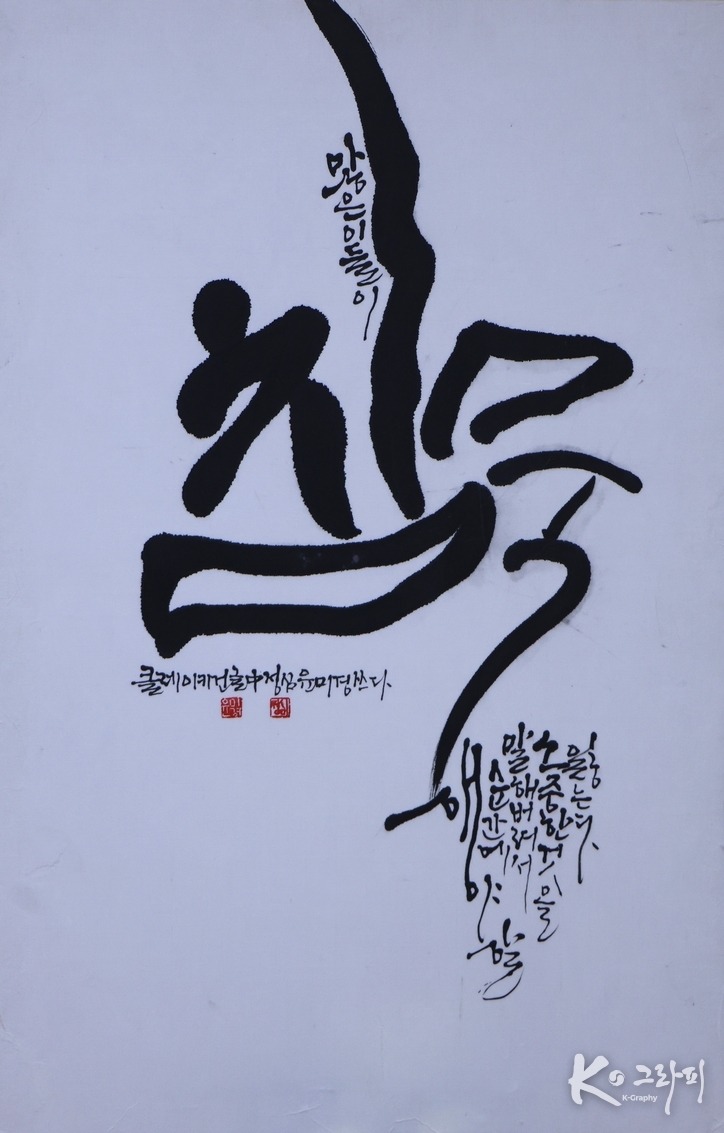 많은이들이
침묵
해야할
순간에
말해버려서
소중한것을
잃는다.
클레이키건글中정심윤미경쓰다.
K그라피
K-Graphy